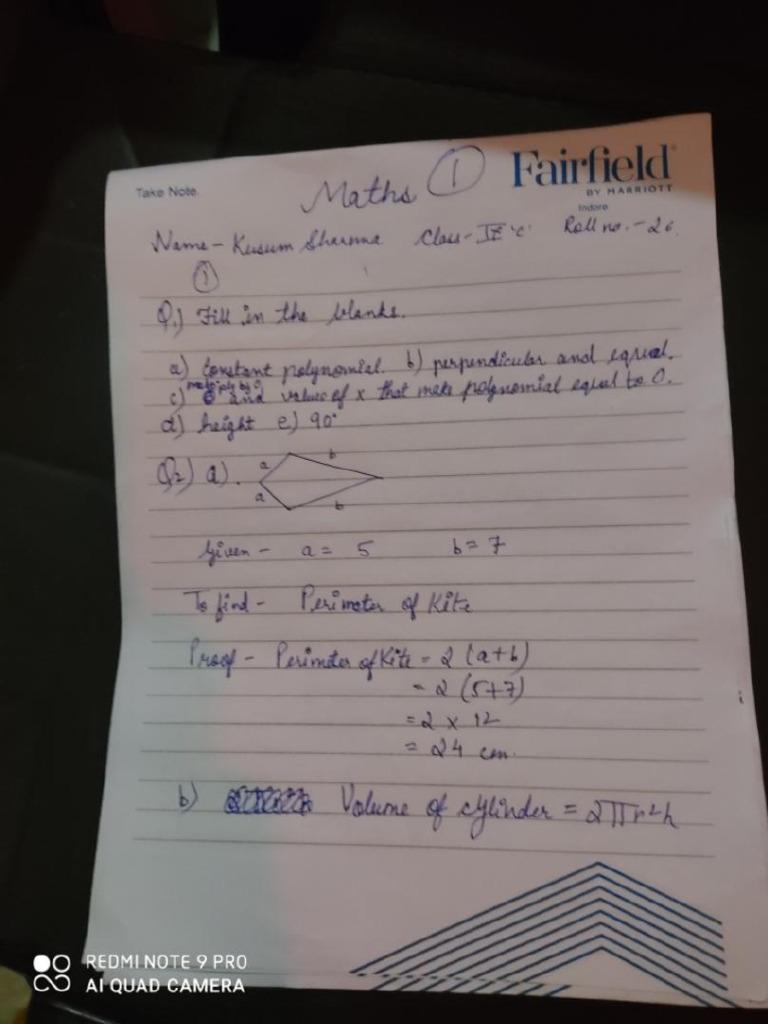 Take Note.
Maths ①
Fairfield
BY MARRIOTT
Indore
Name - Kusum Sharma Class - IX 'C' Roll no. - 26.
①
Q.) Fill in the blanks.
a) Constant polynomial. b) perpendicular and equal.
c) and values of x that make polynomial equal to 0.
d) height e) 90°
Q2) a).
a b
a b
Given - a = 5 b = 7
To find - Perimeter of Kite
Proof - Perimeter of Kite = 2 (a+b)
= 2 (5+7)
= 2 x 12
= 24 cm.
b) Volume of cylinder = 2πr²h
REDMI NOTE 9 PRO
AI QUAD CAMERA